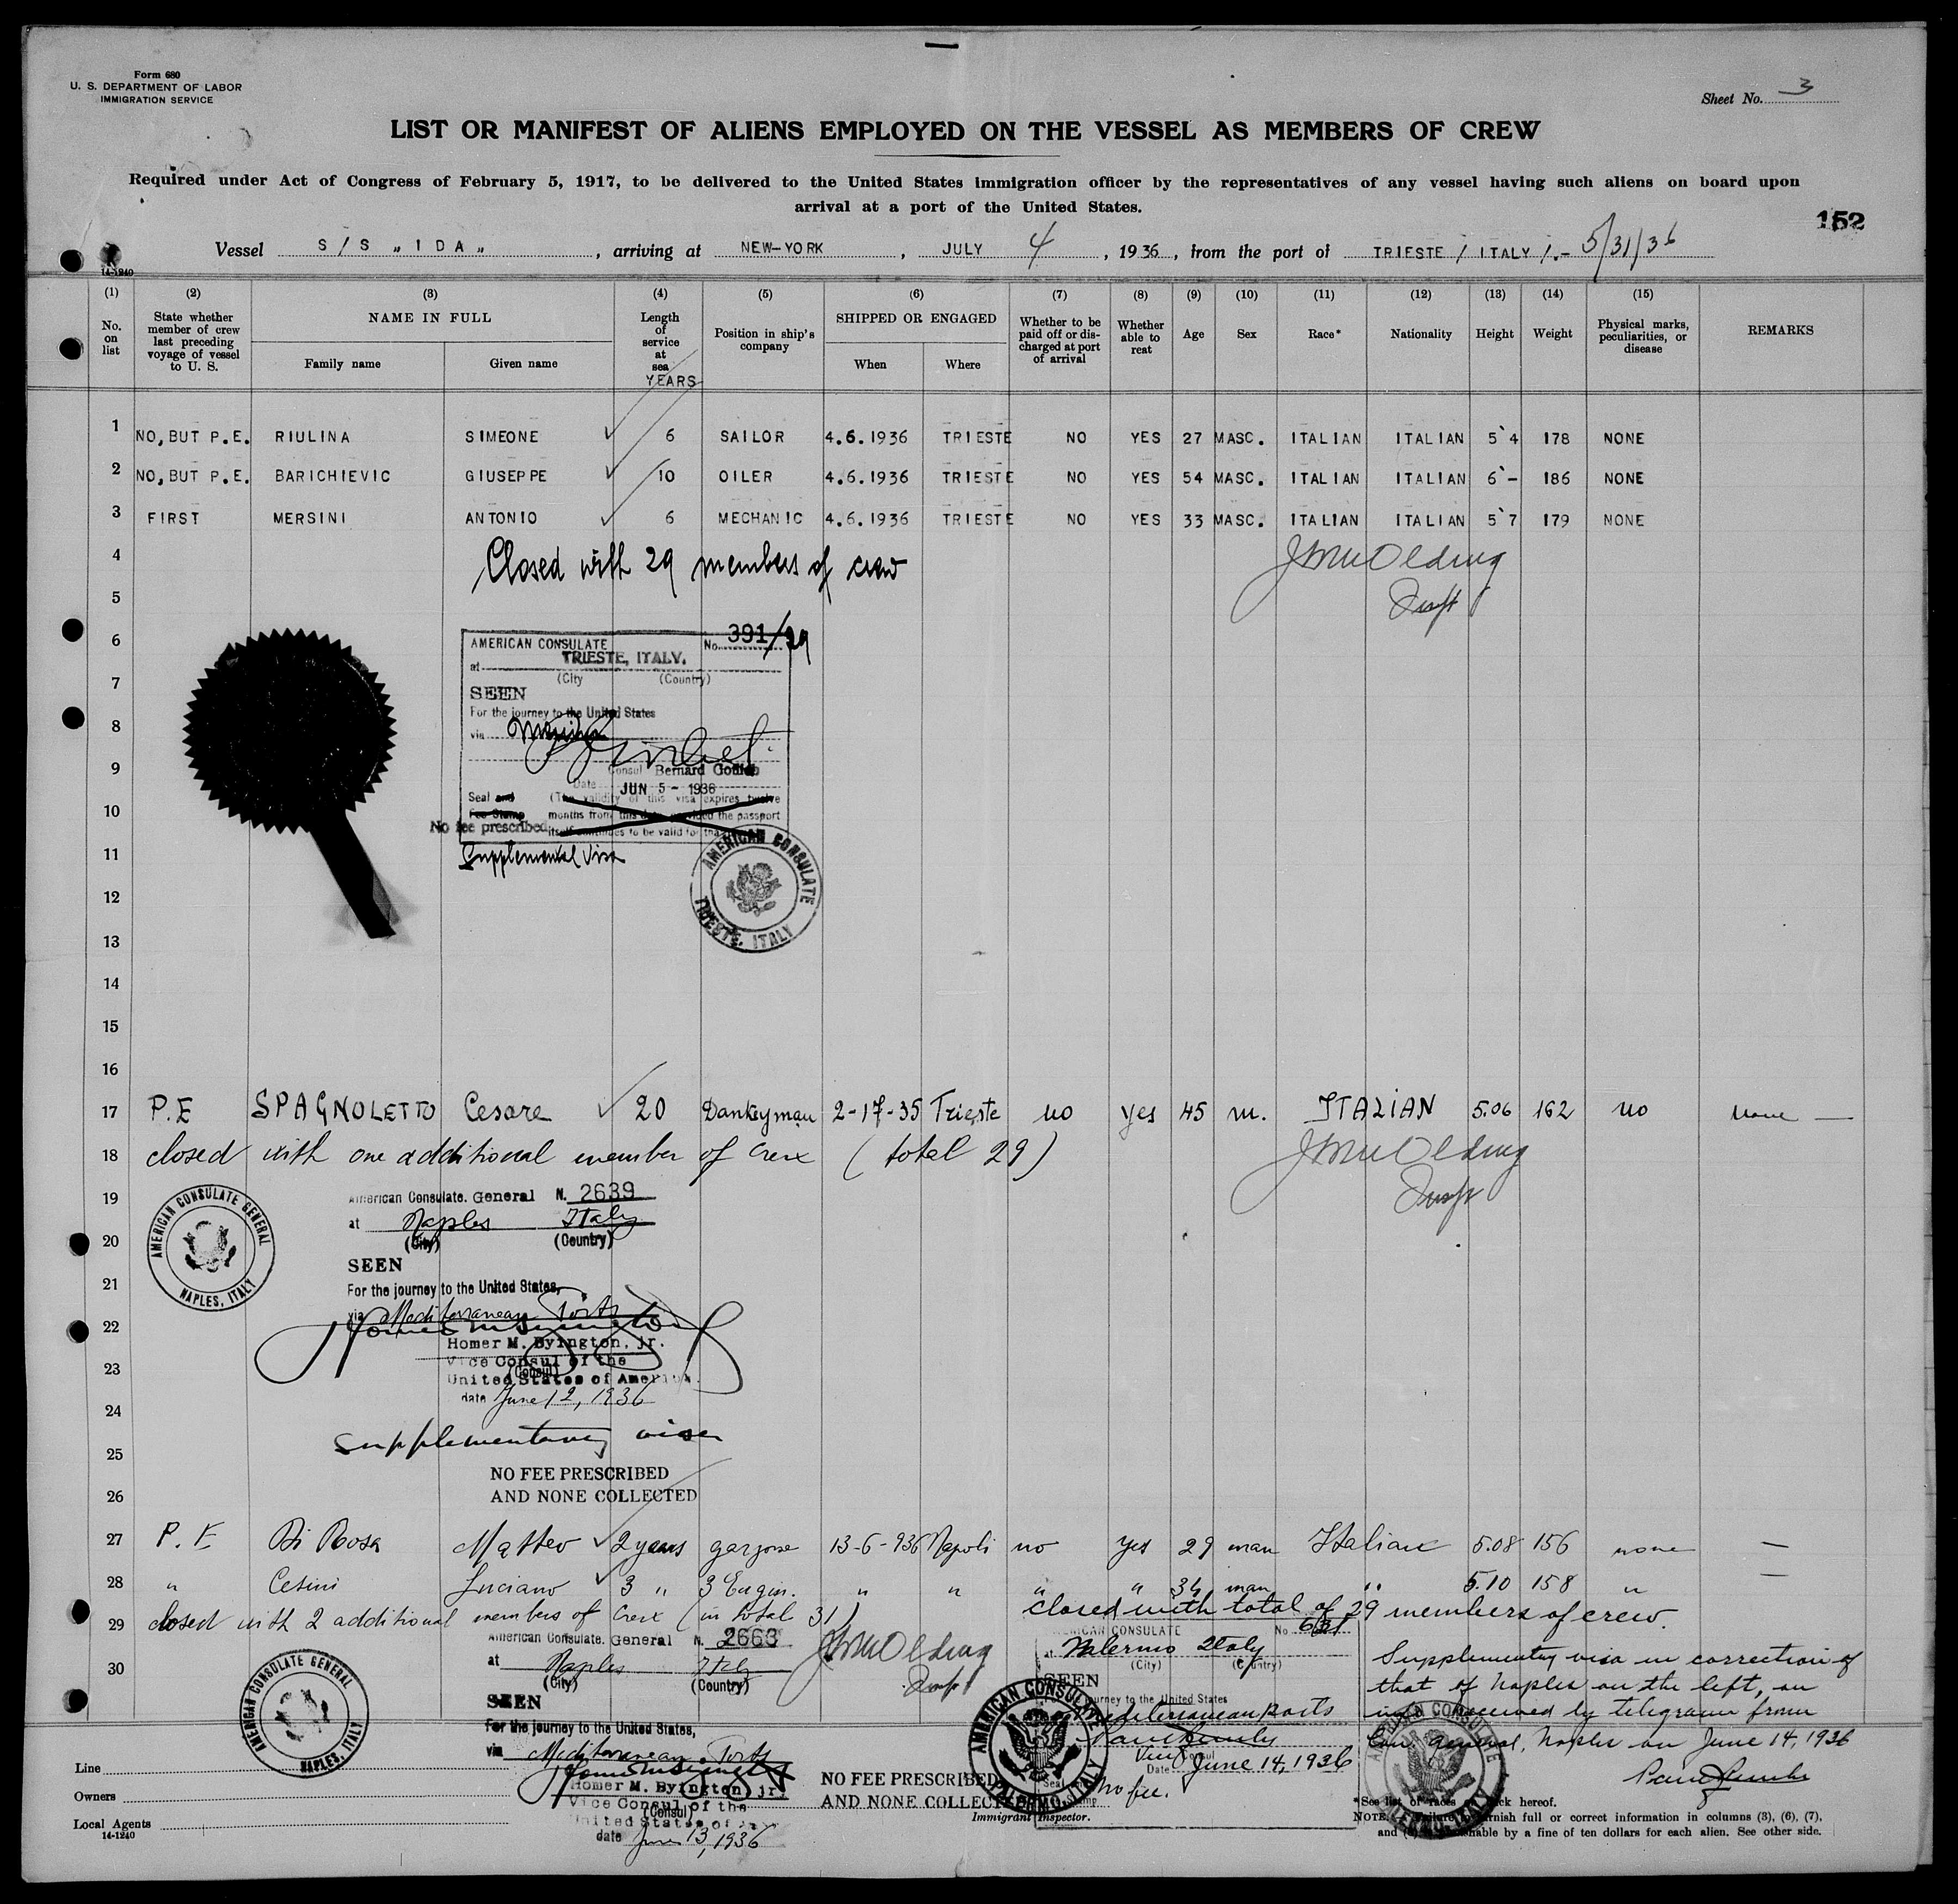 Form 680
U. S. DEPARTMENT OF LABOR
IMMIGRATION SERVICE
Sheet No. 3
LIST OR MANIFEST OF ALIENS EMPLOYED ON THE VESSEL AS MEMBERS OF CREW
Required under Act of Congress of February 5, 1917, to be delivered to the United States immigration officer by the representatives of any vessel having such aliens on board upon
arrival at a port of the United States.
152
Vessel S/S „IDA„, arriving at NEW-YORK, JULY 4, 1936, from the port of TRIESTE / ITALY /.- 5/31/36
14-1240
(1) (2) (3) (4) (5) (6) (7) (8) (9) (10) (11) (12) (13) (14) (15)
No. on list
State whether member of crew last preceding voyage of vessel to U. S.
NAME IN FULL
Family name
Given name
Length of service at sea
YEARS
Position in ship's company
SHIPPED OR ENGAGED
When
Where
Whether to be paid off or discharged at port of arrival
Whether able to reat
Age
Sex
Race*
Nationality
Height
Weight
Physical marks, peculiarities, or disease
REMARKS
1 NO, BUT P.E. RIULINA SIMEONE ✓ 6 SAILOR 4.6.1936 TRIESTE NO YES 27 MASC. ITALIAN ITALIAN 5`4 178 NONE
2 NO, BUT P.E. BARICHIEVIC GIUSEPPE ✓ 10 OILER 4.6.1936 TRIESTE NO YES 54 MASC. ITALIAN ITALIAN 6`- 186 NONE
3 FIRST MERSINI ANTONIO ✓ 6 MECHANIC 4.6.1936 TRIESTE NO YES 33 MASC. ITALIAN ITALIAN 5`7 179 NONE
4 Closed with 29 members of crew
5
6
AMERICAN CONSULATE No. 391/29
at TRIESTE, ITALY.
(City (Country)
7
SEEN
For the journey to the United States
8
via
9
Consul Bernard Gotlieb
Date JUN 5 - 1936
10
Seal and (The validity of this visa expires twelve
Fee Stamp months from this date provided the passport
No fee prescribed itself continues to be valid for that
11
Supplemental Visa
AMERICAN CONSULATE
TRIESTE, ITALY
12
13
14
15
16
17 P.E SPAGNOLETTO Cesare ✓ 20 Dankeyman 2-17-35 Trieste no yes 45 m. ITALIAN 5.06 162 no none —
18 closed with one additional member of Crex (total 29)
19
AMERICAN CONSULATE GENERAL
NAPLES, ITALY
American Consulate. General N. 2639
at Naples Italy
20
(City) (Country)
SEEN
21
For the journey to the United States,
via Mediterranean Ports
22
Homer M. Byington, jr.
Vice Consul of the
23
(Consul)
United States of America.
date June 12, 1936
24
supplementary visa
25
NO FEE PRESCRIBED
26
AND NONE COLLECTED
27 P. E Di Rosa Matteo ✓ 2 years garzone 13-6-936 Napoli no yes 29 man Italian 5.08 156 none —
28 " Cesini Luciano ✓ 3 " 3 Engin. " " " " 34 man " 5.10 158 " —
29 closed with 2 additional members of Crex (in total 31)
closed with total of 29 members of crew.
30
American Consulate. General N. 2663
at Naples Italy
(City) (Country)
SEEN
For the journey to the United States,
via Mediterranean Ports
Homer M. Byington, jr.
Vice Consul of the
(Consul)
United States of
date June 13, 1936
AMERICAN CONSULATE GENERAL
NAPLES, ITALY
NO FEE PRESCRIBED
AND NONE COLLECTED
AMERICAN CONSULATE No. 631
at Palermo Italy
(City) (Country)
SEEN
journey to the United States
Mediterranean ports
Vice Consul
Date June 14, 1936
Seal
No fee.
AMERICAN CONSULATE
PALERMO, ITALY
Immigrant Inspector.
Supplementry visa in correction of
that of Naples on the left, as
received by telegram from
Con. General, Naples on June 14, 1936
Line
Owners
Local Agents
14-1240
*See list of races back hereof.
NOTE. Failure to furnish full or correct information in columns (3), (6), (7),
and punishable by a fine of ten dollars for each alien. See other side.